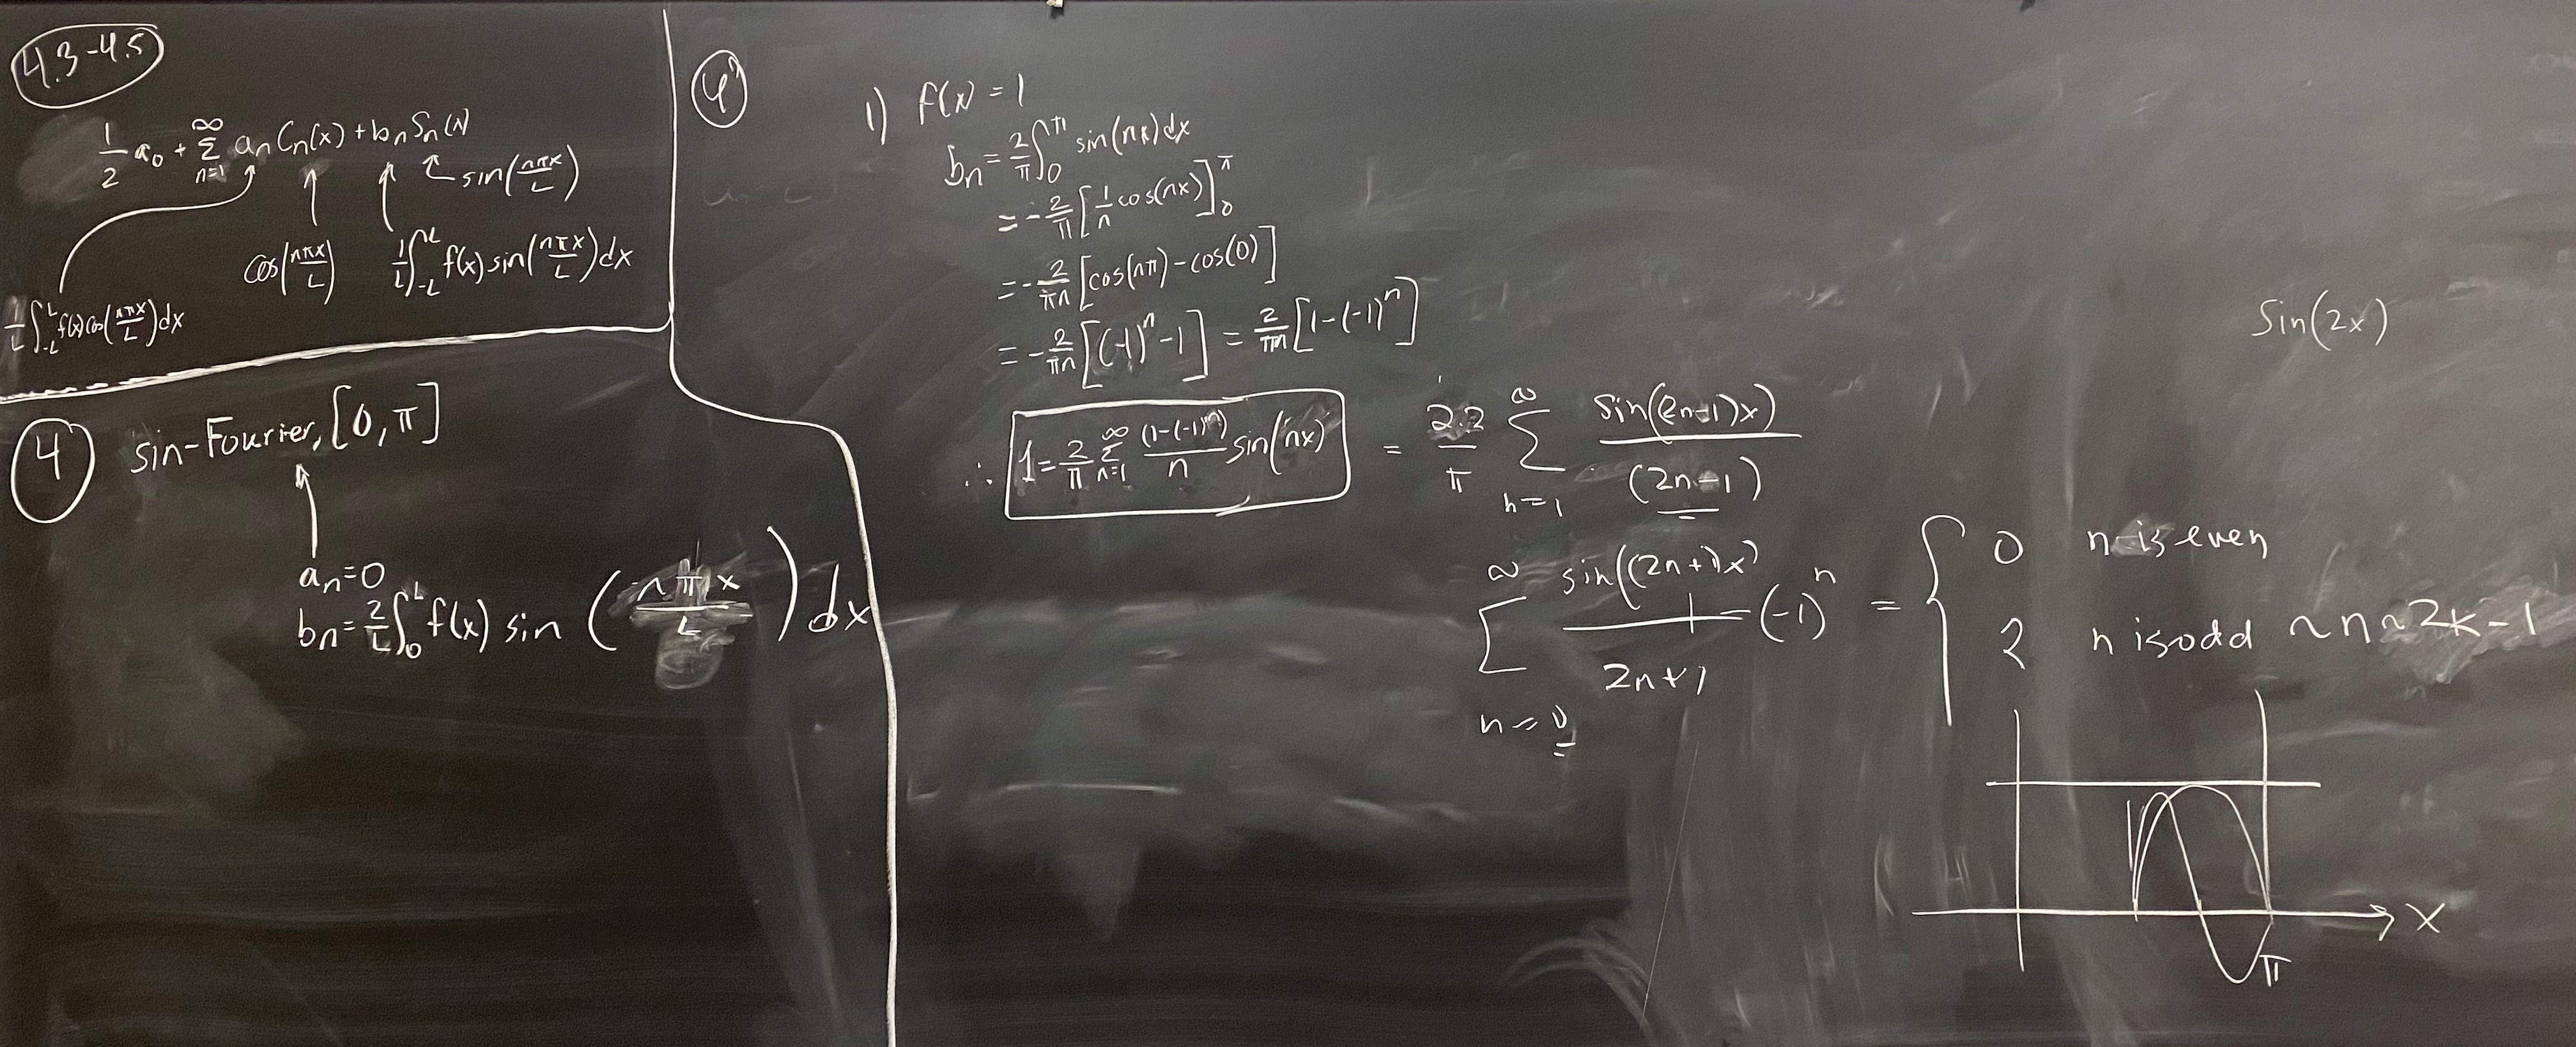 4.3-4.5
1/2 a₀ + ∞Σn=1 aₙCₙ(x) + bₙSₙ(x)
sin(nπx/L)
cos(nπx/L)
1/L ∫_-L^L f(x) sin(nπx/L)dx
1/L ∫_-L^L f(x)cos(nπx/L)dx
4 sin-Fourier, [0, π]
aₙ=0
bₙ= 2/L ∫_0^L f(x) sin (nπx/L) dx
4
1) f(x) = 1
bₙ = 2/π ∫_0^π sin(nx)dx
= -2/π [1/n cos(nx)]_0^π
= -2/πn [cos(nπ) - cos(0)]
= -2/πn [(-1)ⁿ - 1] = 2/πn [1-(-1)ⁿ]
∴ 1 = 2/π ∞Σn=1 (1-(-1)ⁿ)/n sin(nx) = 2·2/π ∞Σn=1 sin(2n-1)x)/(2n-1)
∞Σn=0 sin((2n+1)x)/2n+1 (-1)ⁿ = {
0 n is even
2 n is odd ~ n ~ 2k-1
Sin(2x)
x
π